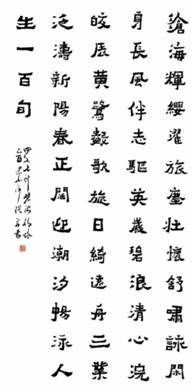 滄海輝纓濯旅塵壯懷舒嘯詠閑
身長風伴志驅英義碧浪清心浣
皎辰黃鷺數歌旋日綺遠舟三業
泛濤新陽春正闊迎潮汐暢泳人
生一百旬